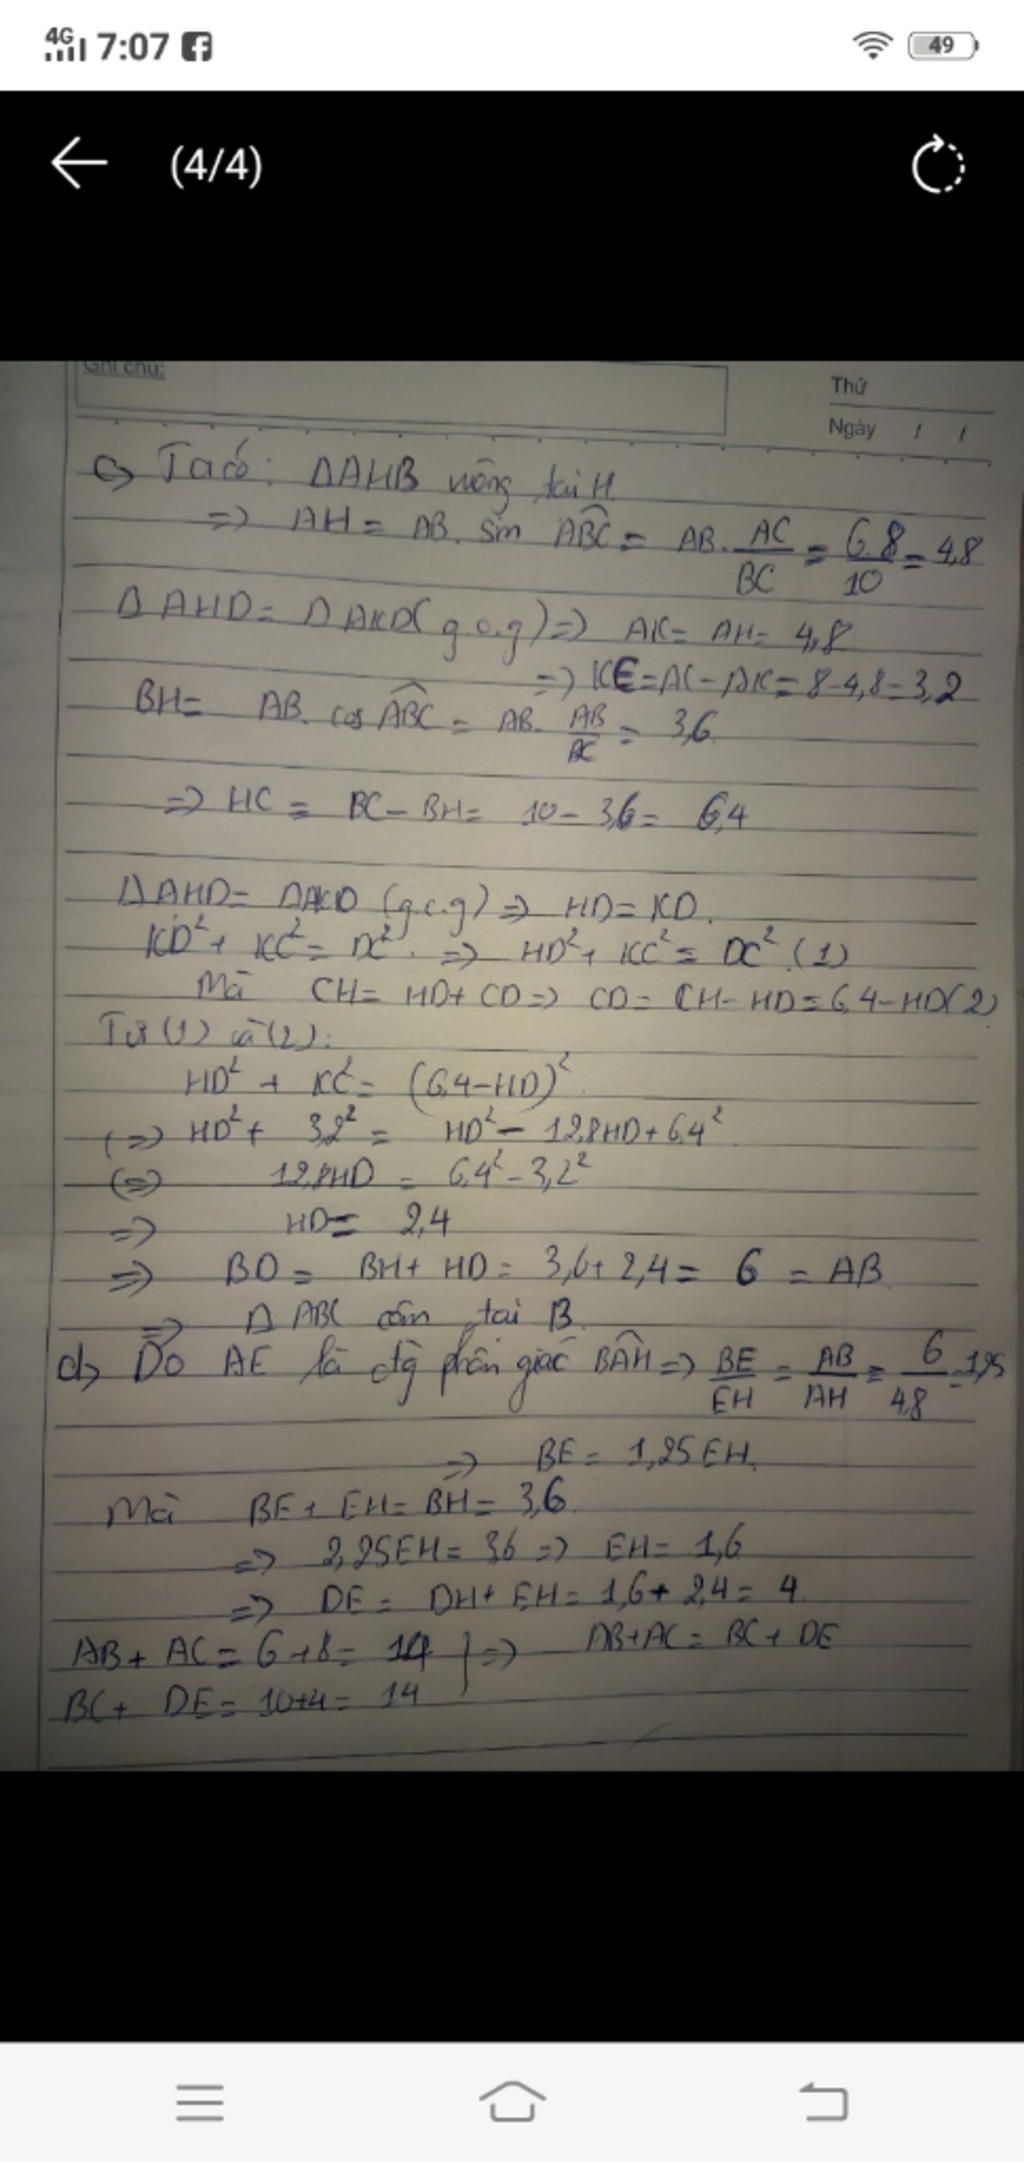 4G 7:07 49
(4/4)
Ghi chú:
Thứ
Ngày / /
c, Ta có: ΔAHB vuông tại H
=> AH = AB. sin ABC = AB. AC/BC = 6.8/10 = 4,8
ΔAHD = ΔAKD (g.c.g) => AK = AH = 4,8
=> KC = AC - AK = 8 - 4,8 = 3,2
BH = AB. cos ABC = AB. AB/BC = 3,6
=> HC = BC - BH = 10 - 3,6 = 6,4
ΔAHD = ΔAKD (g.c.g) => HD = KD.
KD² + KC² = DC². => HD² + KC² = DC² (1)
Mà CH = HD + CD => CD = CH - HD = 6,4 - HD (2)
Từ (1) và (2):
HD² + KC² = (6,4 - HD)²
(=>) HD² + 3,2² = HD² - 12,8HD + 6,4²
(=>) 12,8HD = 6,4² - 3,2²
=> HD = 2,4
=> BD = BH + HD = 3,6 + 2,4 = 6 = AB
=> Δ ABC cân tại B
d, Do AE là đg phân giác BAH => BE/EH = AB/AH = 6/4,8 = 1,25
=> BE = 1,25 EH.
Mà BE + EH = BH = 3,6
=> 2,25EH = 3,6 => EH = 1,6
=> DE = DH + EH = 1,6 + 2,4 = 4
AB + AC = 6 + 8 = 14 } => AB + AC = BC + DE
BC + DE = 10 + 4 = 14